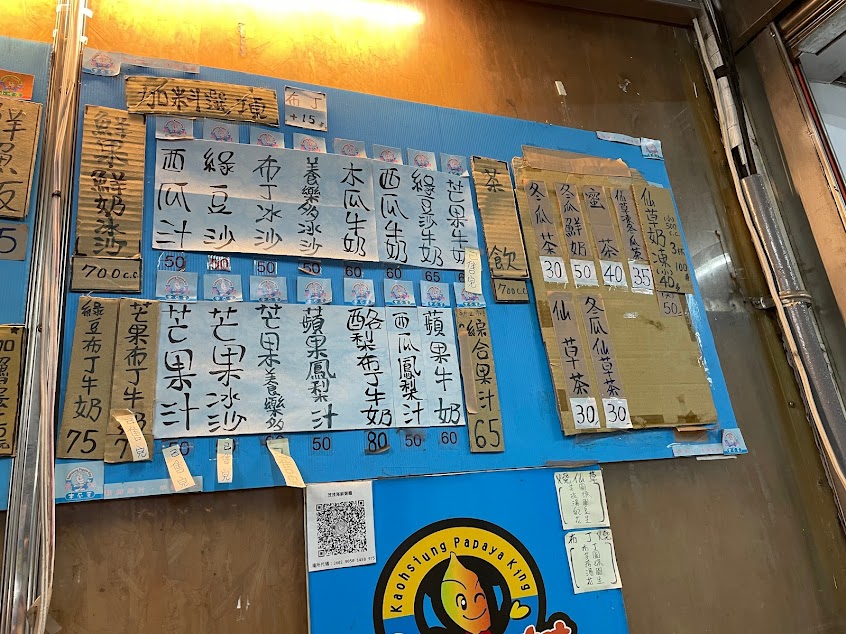 加料選擇
布丁
+15
鮮果鮮奶冰沙
700c.c
西瓜汁
50
綠豆沙
50
布丁冰沙
50
養樂多冰沙
50
木瓜牛奶
60
西瓜牛奶
60
綠豆沙牛奶
65
芒果牛奶
綠豆布丁牛奶
75
芒果布丁牛奶
芒果汁
50
芒果冰沙
芒果養樂多
蘋果鳳梨汁
50
酪梨布丁牛奶
80
西瓜鳳梨汁
50
蘋果牛奶
60
綜合果汁
65
茶飲
700c.c
冬瓜茶
30
冬瓜鮮奶
50
蜜茶
40
仙草凍冬瓜茶
35
仙草奶凍
40
50
3杯
100
仙草茶
30
冬瓜仙草茶
30
Kaohsiung Papaya King
燒仙草
布丁燒